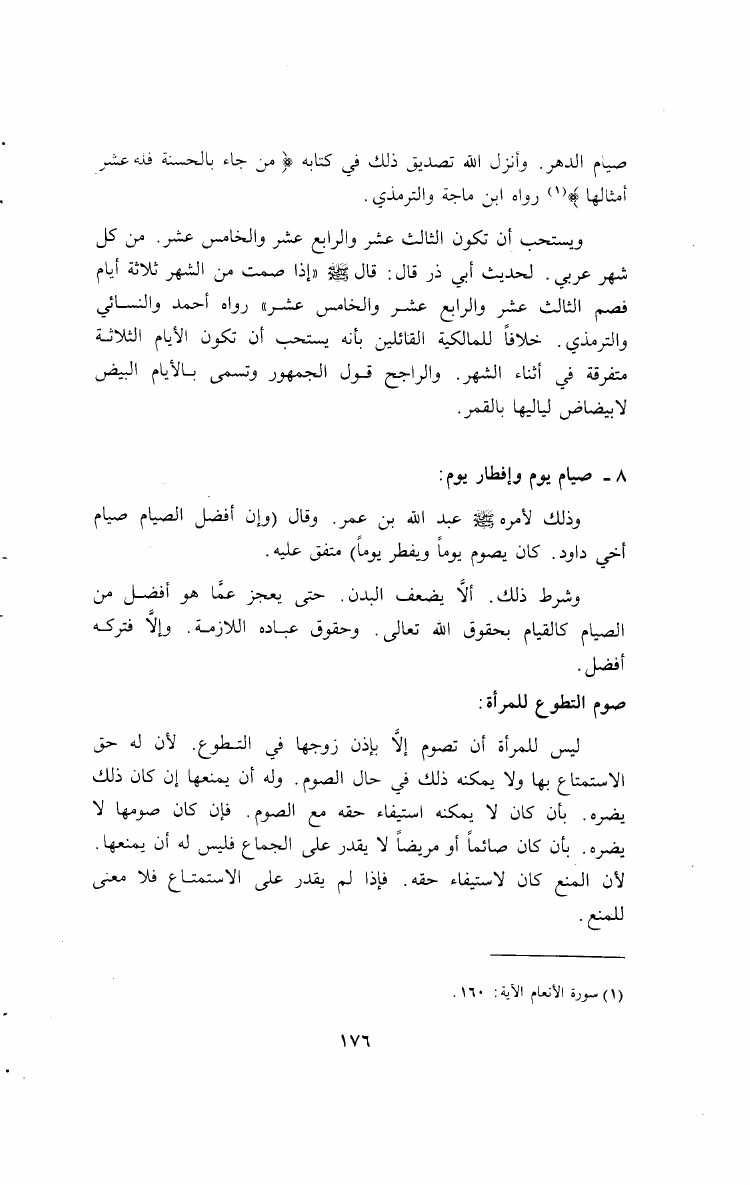 صيام الدهر. وأنزل الله تصديق ذلك في كتابه ﴿ من جاء بالحسنة فله عشر
أمثالها ﴾(١) رواه ابن ماجة والترمذي.
ويستحب أن تكون الثالث عشر والرابع عشر والخامس عشر. من كل
شهر عربي. لحديث أبي ذر قال: قال ﷺ «إذا صمت من الشهر ثلاثة أيام
فصم الثالث عشر والرابع عشر والخامس عشر» رواه أحمد والنسائي
والترمذي. خلافاً للمالكية القائلين بأنه يستحب أن تكون الأيام الثلاثة
متفرقة في أثناء الشهر. والراجح قول الجمهور وتسمى بالأيام البيض
لابيضاض لياليها بالقمر.
٨ - صيام يوم وإفطار يوم:
وذلك لأمره ﷺ عبد الله بن عمر. وقال (وإن أفضل الصيام صيام
أخي داود. كان يصوم يوماً ويفطر يوماً) متفق عليه.
وشرط ذلك. ألَّا يضعف البدن. حتى يعجز عمَّا هو أفضل من
الصيام كالقيام بحقوق الله تعالى. وحقوق عباده اللازمة. وإلَّا فتركه
أفضل.
صوم التطوع للمرأة:
ليس للمرأة أن تصوم إلَّا بإذن زوجها في التطوع. لأن له حق
الاستمتاع بها ولا يمكنه ذلك في حال الصوم. وله أن يمنعها إن كان ذلك
يضره. بأن كان لا يمكنه استيفاء حقه مع الصوم. فإن كان صومها لا
يضره. بأن كان صائماً أو مريضاً لا يقدر على الجماع فليس له أن يمنعها.
لأن المنع كان لاستيفاء حقه. فإذا لم يقدر على الاستمتاع فلا معنى
للمنع.
(١) سورة الأنعام الآية: ١٦٠.
١٧٦